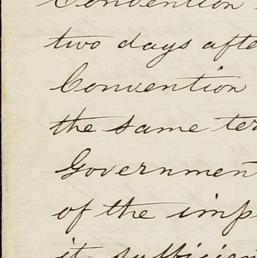 Convention
two days afte
Convention
the same ter
Governmen
of the imp
it sufficien